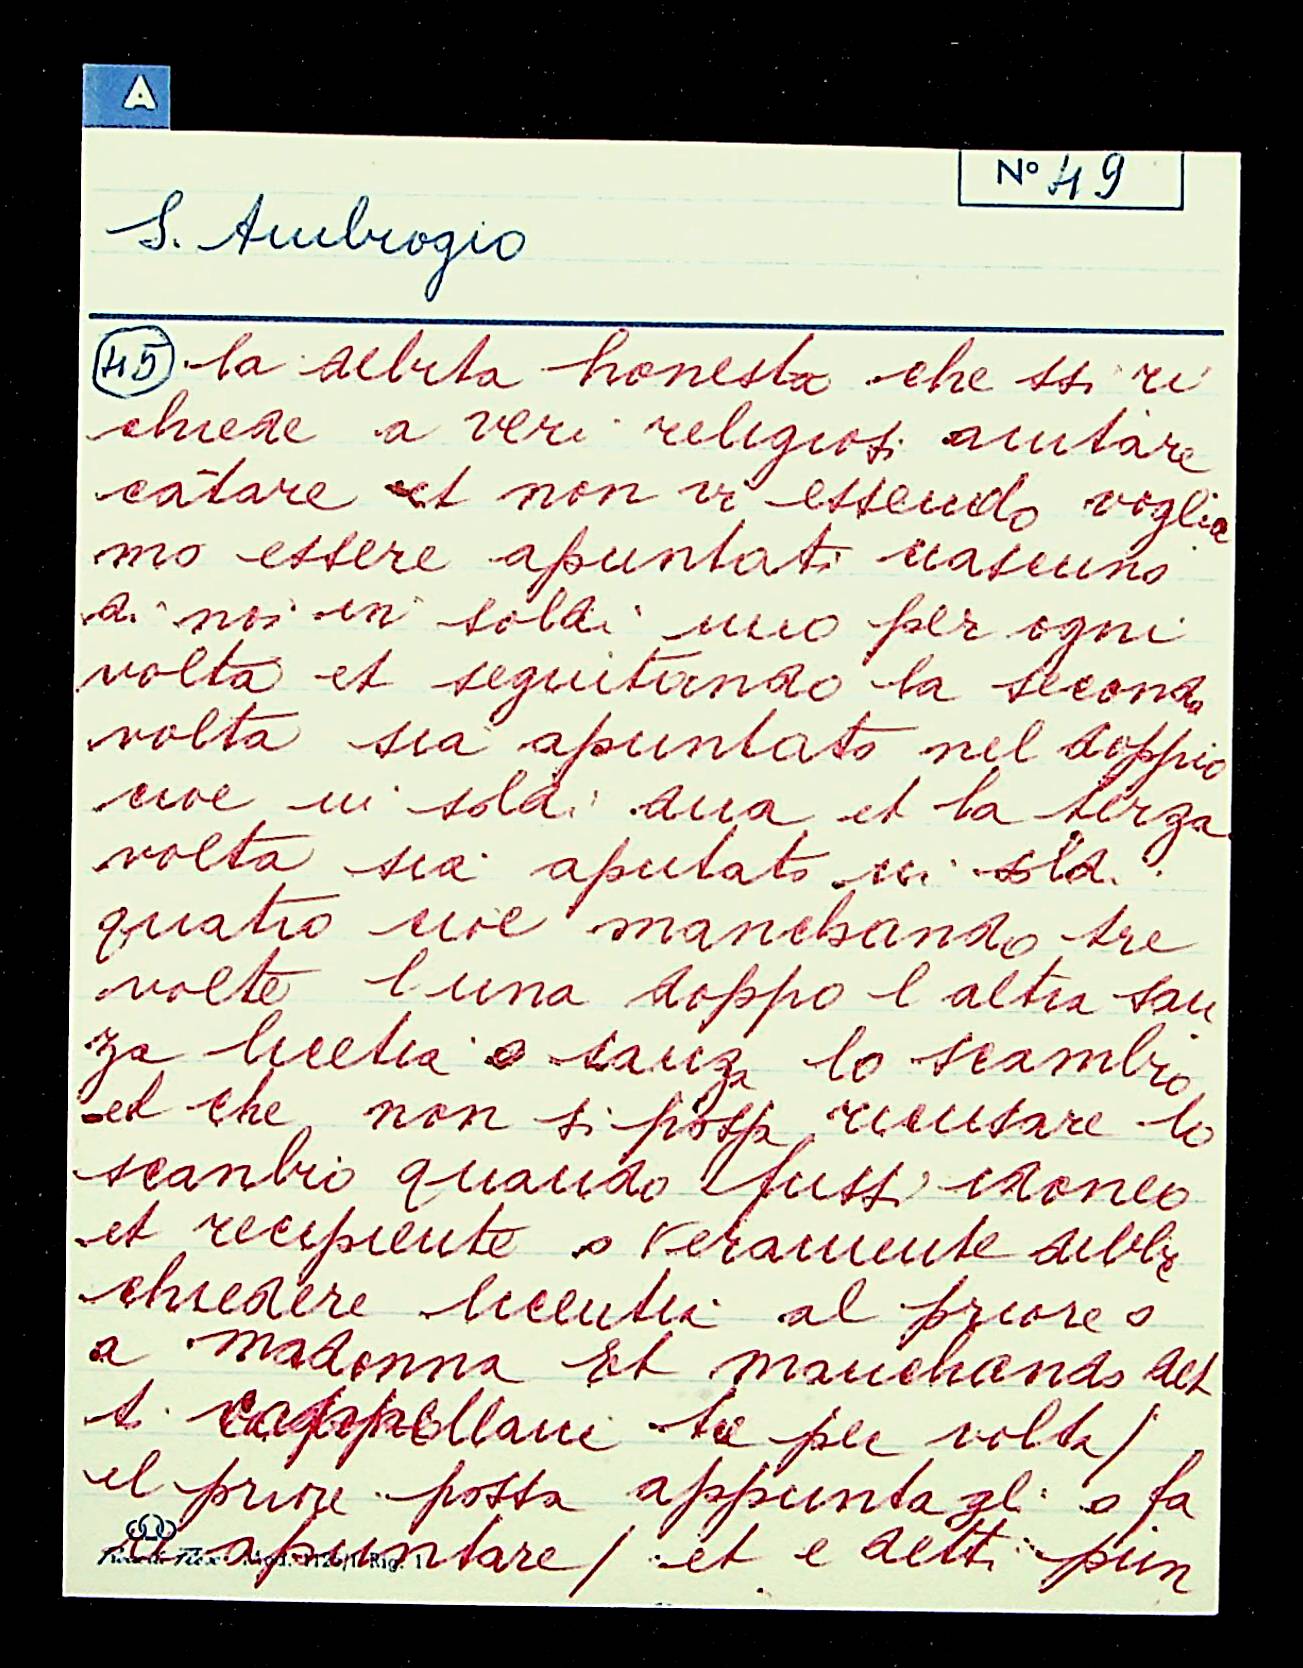 A
Nº 49
S. Ambrogio
45 la debita honesta che ssi ri
chiede a veri religiosi aiutare
cātare et non vi essendo voglia
mo essere apuntati ciascuno
di noi in soldi uno per ogni
volta et seguitando la seconda
volta sia apuntato nel doppio
cioe in soldi dua et la terza
volta sia aputato in sold.
quatro cioe manchando tre
volte l una doppo l altra san
za licetia o sanza lo scambio
et che non si possa ricusare lo
scanbio quando fussi idoneo
et recipiente o veramente debbe
chiedere licentia al priore o
a madonna Et manchando det
ti cappellani tre per volta/
el priore possa appuntagli o fa
re apuntare/ et e detti pun